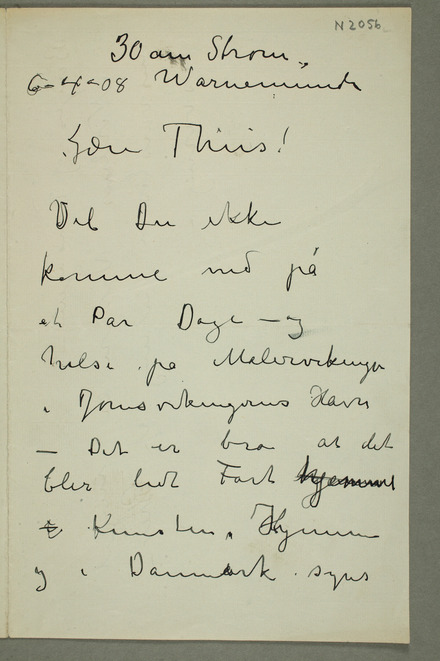 N 2056
30 am Strom
6-4-08 Warnemünde
Kjære Thiis!
Vil Du ikke
komme ned på
et Par Dage – og
hilse på Malervikingen
i Jomsvikingernes Havn
– Det er bra at det
blir lidt Fart hjemme
i Kunsten. Hjemme
og i Danmark synes